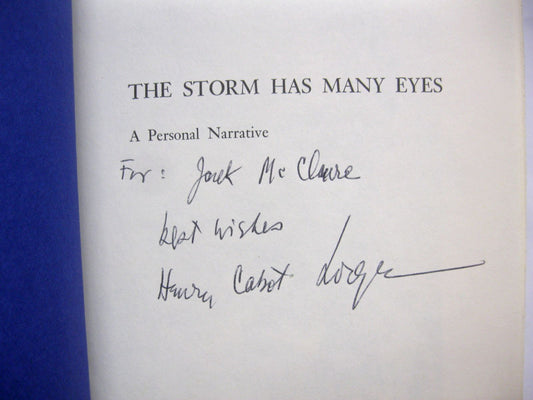 THE STORM HAS MANY EYES
A Personal Narrative
For: Jack McClure
best wishes
Henry Cabot Lodge